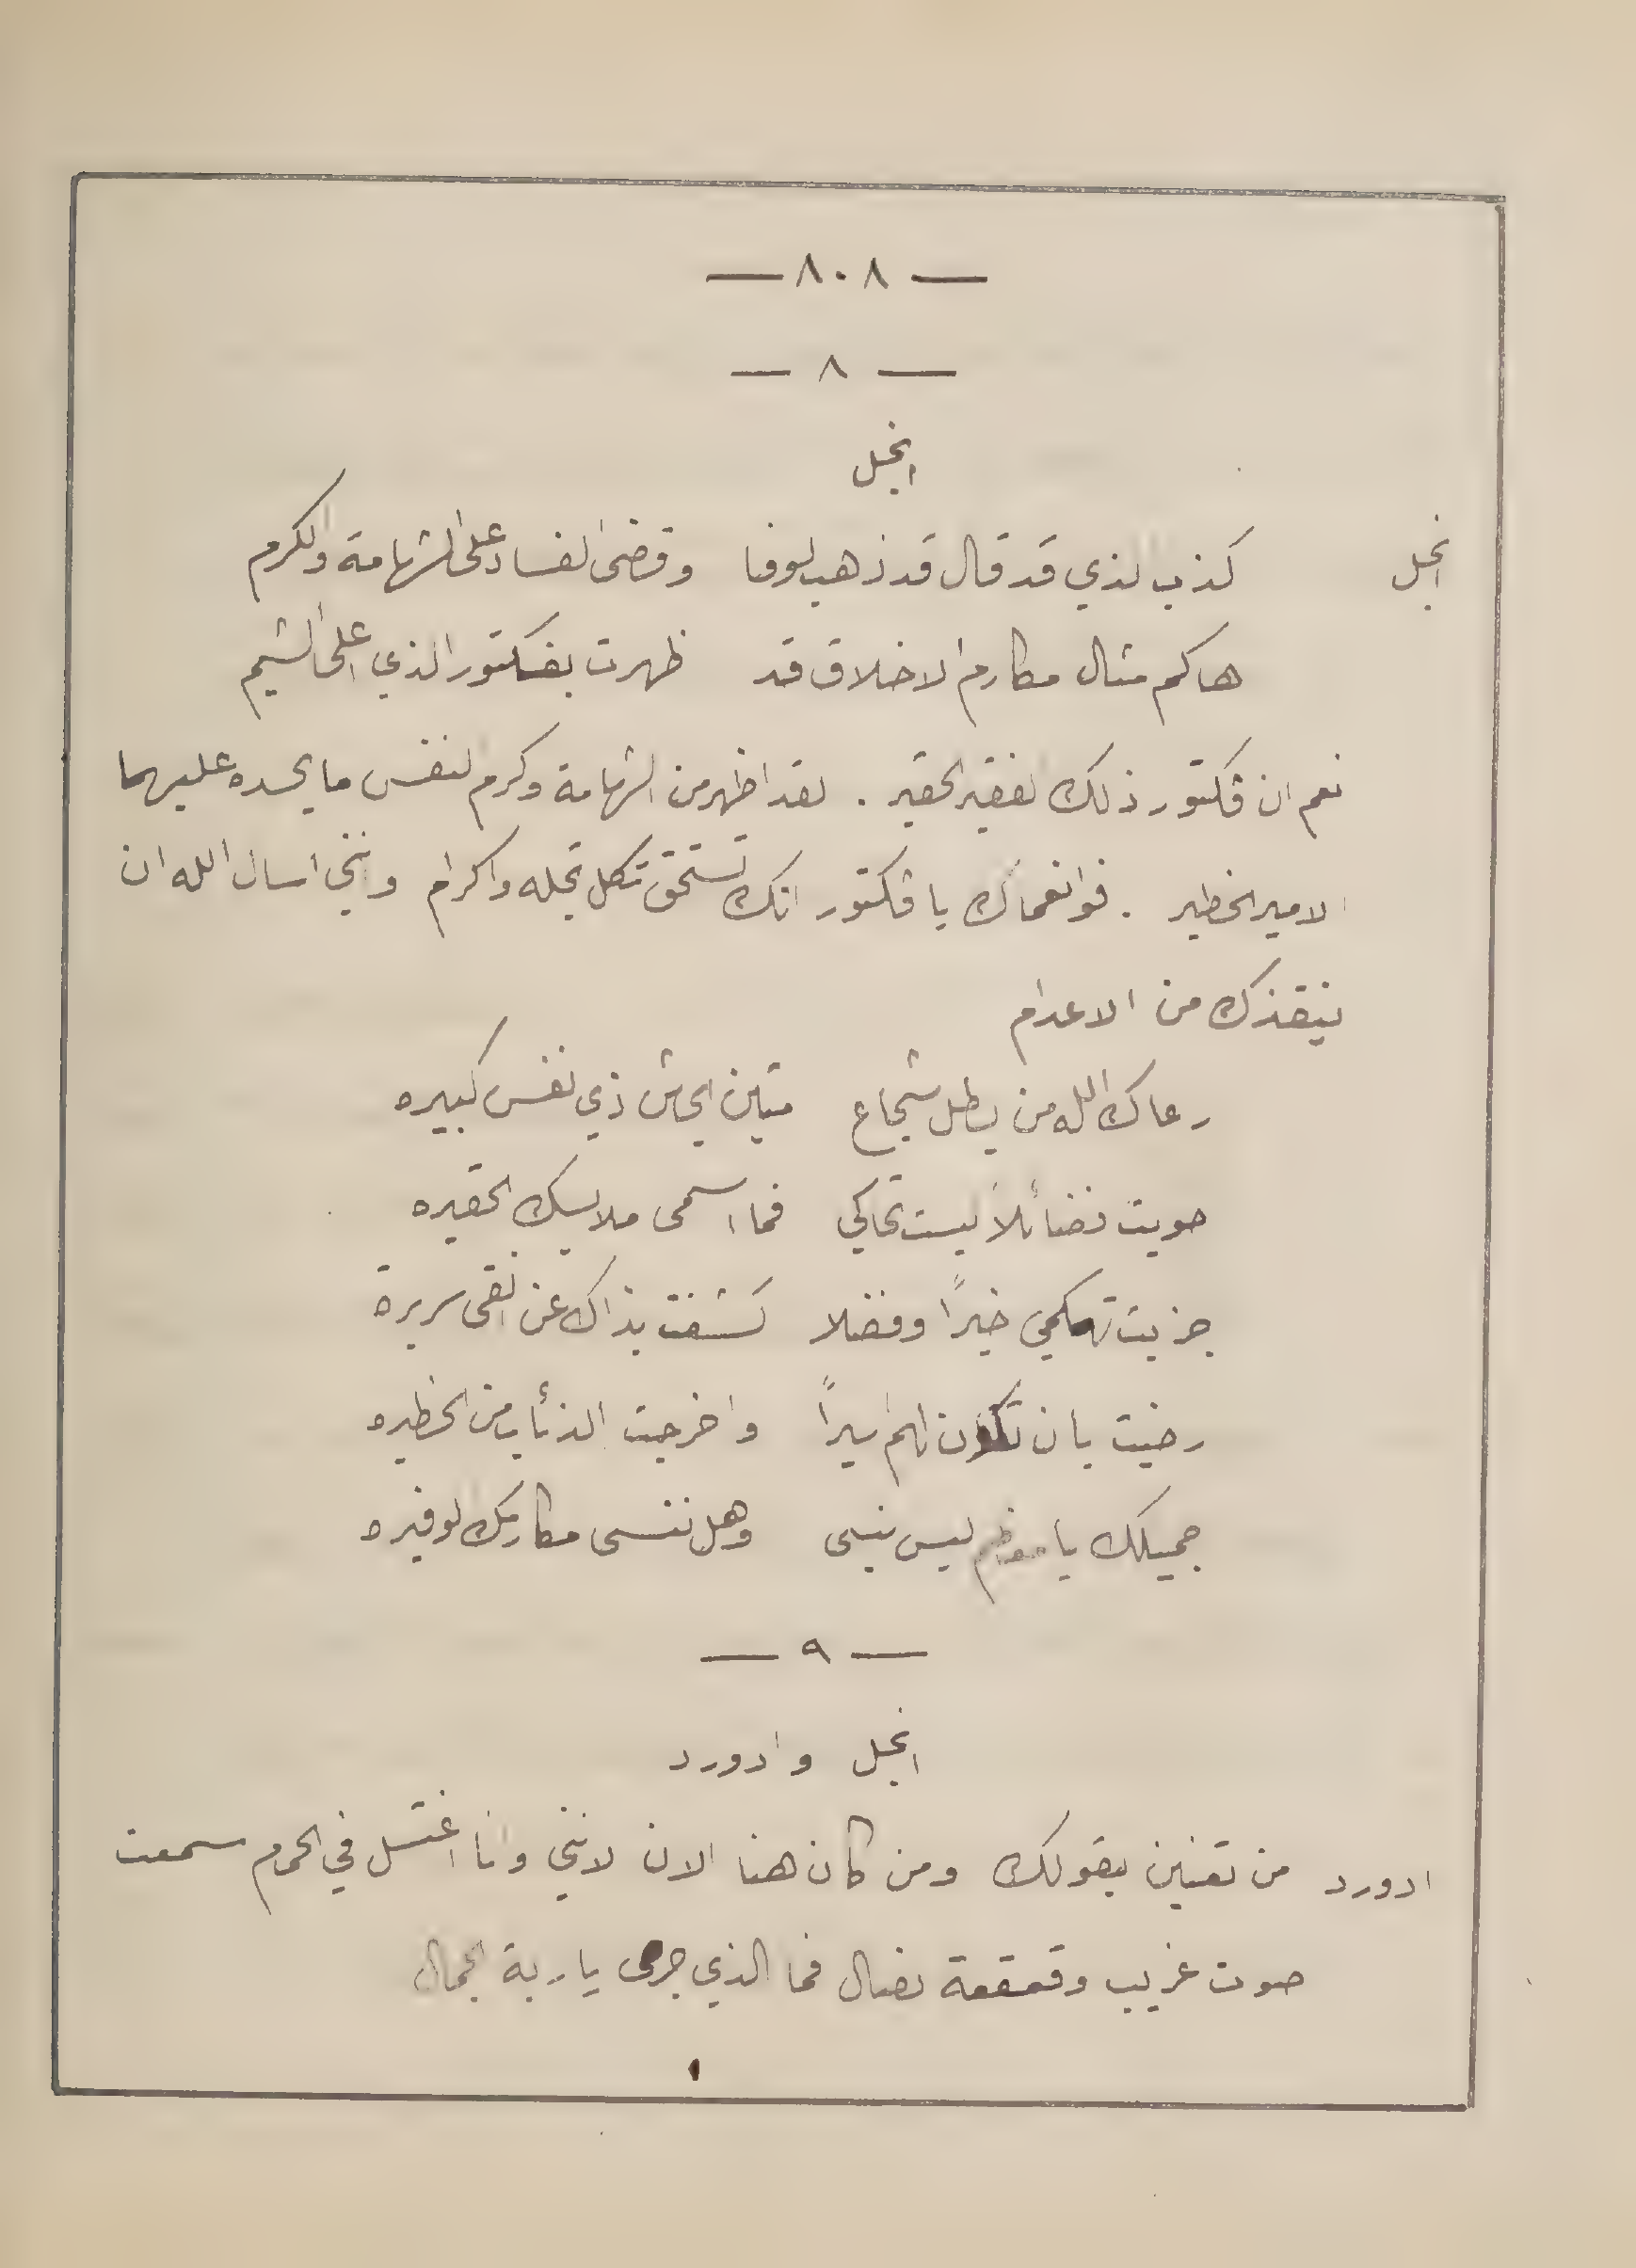 — ٨٠٨ —
— ٨ —
انجل
انجل كذب الذي قد قال قد ذهب الوفا وقضى الفساد على الشهامة والكرم
هاكم مثال مكارم الاخلاق قد ظهرت بفكتور الذي اعلى الشيم
نعم ان فكتور ذلك الفقير الحقير . لقد اظهر من الشهامة وكرم النفس ما يحسده عليهما
الامير الخطير . فوانعماك يا فكتور انك تستحق كل تجله واكرام وانني اسال الله ان
ينقذك من الاعدام
رعاك الله من بطل شجاع متين الجاش ذي نفس كبيره
حويت فضائلاً ليست تحاكي فما اسمى ملابسك الحقيره
جزيت تهكمي خيراً وفضلا كشفت بذاك عن انقى سريرة
رضيت بان تكون لهم اسيراً واخرجت الذئاب من الحظيره
جميلك يا معظم ليس ينسى وهل ننسى مكارمك الوفيره
— ٩ —
انجل وادورد
ادورد من تعنين بقولك ومن كان هنا الان لانني وانا اغتسل في الحمام سمعت
صوت غريب وقعقعة نضال فما الذي جرى يا ربة الجمال